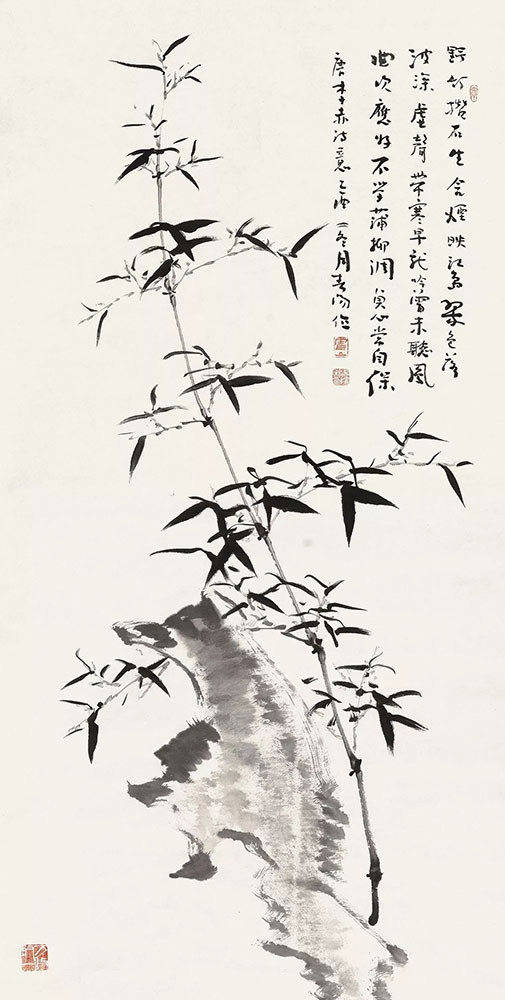 野竹攢石生含煙映江島翠色落
波深虛聲帶寒早龍吟曾未聽鳳
曲吹應好不學蒲柳凋貞心嘗自保
唐李 詩意乙酉 冬月